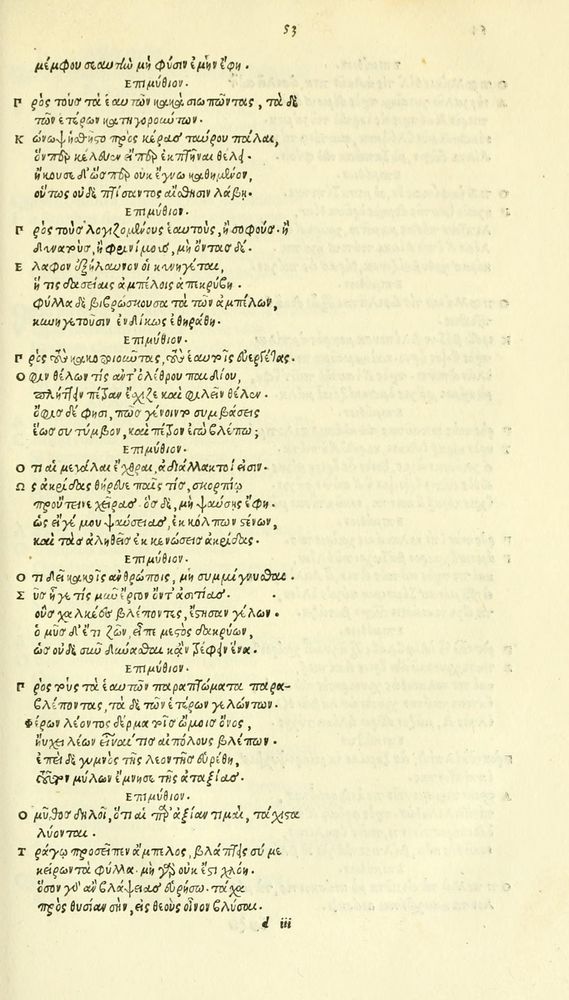 53
μέμφου σεαυτῷ μὴ φύσιν ἐμὴν ἔφη.
Ἐπιμύθιον.
Πρὸς τοὺς τὰ ἑαυτῶν κακὰ σιωπῶντας, τὰ δὲ
τῶν ἑτέρων κατηγοροῦντων.
Κώνωψ ἤσθητο πρὸς κέρας ταύρου πάλαι,
ὅνπερ κέλευεν εἴπερ ἐκπτῆναι θέλει.
ἤκουσε δ' ὥσπερ οὐκ ἔγνω καθημένον,
οὕτως οὐδὲ πτήσαντος αἴσθησιν λάβῃ.
Ἐπιμύθιον.
Πρὸς τοὺς λογιζομένους ἑαυτοὺς, ἢ σοφοὺς. ἢ
δυνατοὺς, ἢ φρονίμους, μὴ ὄντας δέ.
Ἔλαφον ἐξήλαυνον οἱ κυνηγέται,
ἥ τις δασείαις ἀμπέλοις ἀπεκρύβη.
φύλλα δὲ βιβρώσκουσα τὰ τῶν ἀμπέλων,
κυνηγετοῦσιν ἐνδίκως ἐθηράθη.
Ἐπιμύθιον.
Πρὸς τοὺς κακοποιοῦντας, τοὺς ἑαυτοῖς εὐεργέτας.
Ὄφιν θέλων τὶς ἀντ' ὀλέθρου παιδίου,
πλήττειν πέτραν ἔσχιζε καὶ φιλεῖν θέλον.
ὄφις δέ φησι, πῶς γένοιντο συμβάσεις
ἕως σὺ τύμβον, καὶ πέτραν ἐγὼ βλέπω;
Ἐπιμύθιον.
Ὅτι αἱ μεγάλαι ἔχθραι, ἀδιάλλακτοί εἰσιν.
Ὡς ἀκρίδας θήρευε παῖς τις, σκορπίῳ
προὔτεινε χεῖρας. ὃς δὲ, μὴ ψαύσῃς ἔφη.
ὡς εἴγέ μου ψαύσειας, ἐκ κόλπων σένων,
καὶ τὰς ἀληθεῖς ἐκκενώσεις ἀκρίδας.
Ἐπιμύθιον.
Ὅτι δεῖ κακοῖς ἀνθρώποις, μὴ συμμίγνυσθαι.
Σῦς ἦγε τὶς μυῶξρον ὄντ' ἀσιτίας.
οὓς χαλκέας βλέποντες, ἔστησαν γέλων.
ὁ μῦς δ' ἔτι ζῶν, εἶπε μεστὸς δακρύων,
ὡς οὐδὲ σοῦ δύνασθαι κἂν τρέφειν ἕνα.
Ἐπιμύθιον.
Πρὸς τοὺς τὰ ἑαυτῶν παραπτώματα παρα-
βλέποντας, τὰ δὲ τῶν ἑτέρων γελώντων.
Φέρων λέοντος δέρμα τοῖς ὤμοις ὄνος,
ηὔχει λέων εἶναί τις αἰπόλους βλέπων.
ἐπεὶ δὲ γυμνὸς τῆς λεοντῆς εὑρέθη,
αὐτὸν μύλων ἔμνησε τῆς ἀταξίας.
Ἐπιμύθιον.
Ὁ μῦθος δηλοῖ, ὅτι αἱ παρ' ἀξίαν τιμαὶ, τάχιστα
λύονται.
Τράγῳ προσεῖπεν ἄμπελος, βλάπτεις σύ με
κείρων τὰ φύλλα. μὴ γὰρ οὐκ ἔστι χλόη.
ὅσον γδ' ἂν βλάψειας εὑρήσω. τάχα
πρὸς θυσίαν σὴν, εἰς θεοὺς οἶνον βλύσαι.
d iii